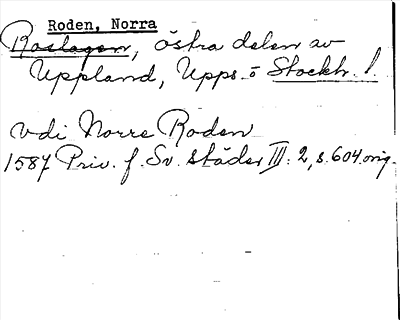 Roden, Norra
Roslagen, östra delen av
Uppland, Upps. o Stockh. l.
vdi Norre Roden
1587 Priv. f. Sv. städer III: 2, s. 604. orig.